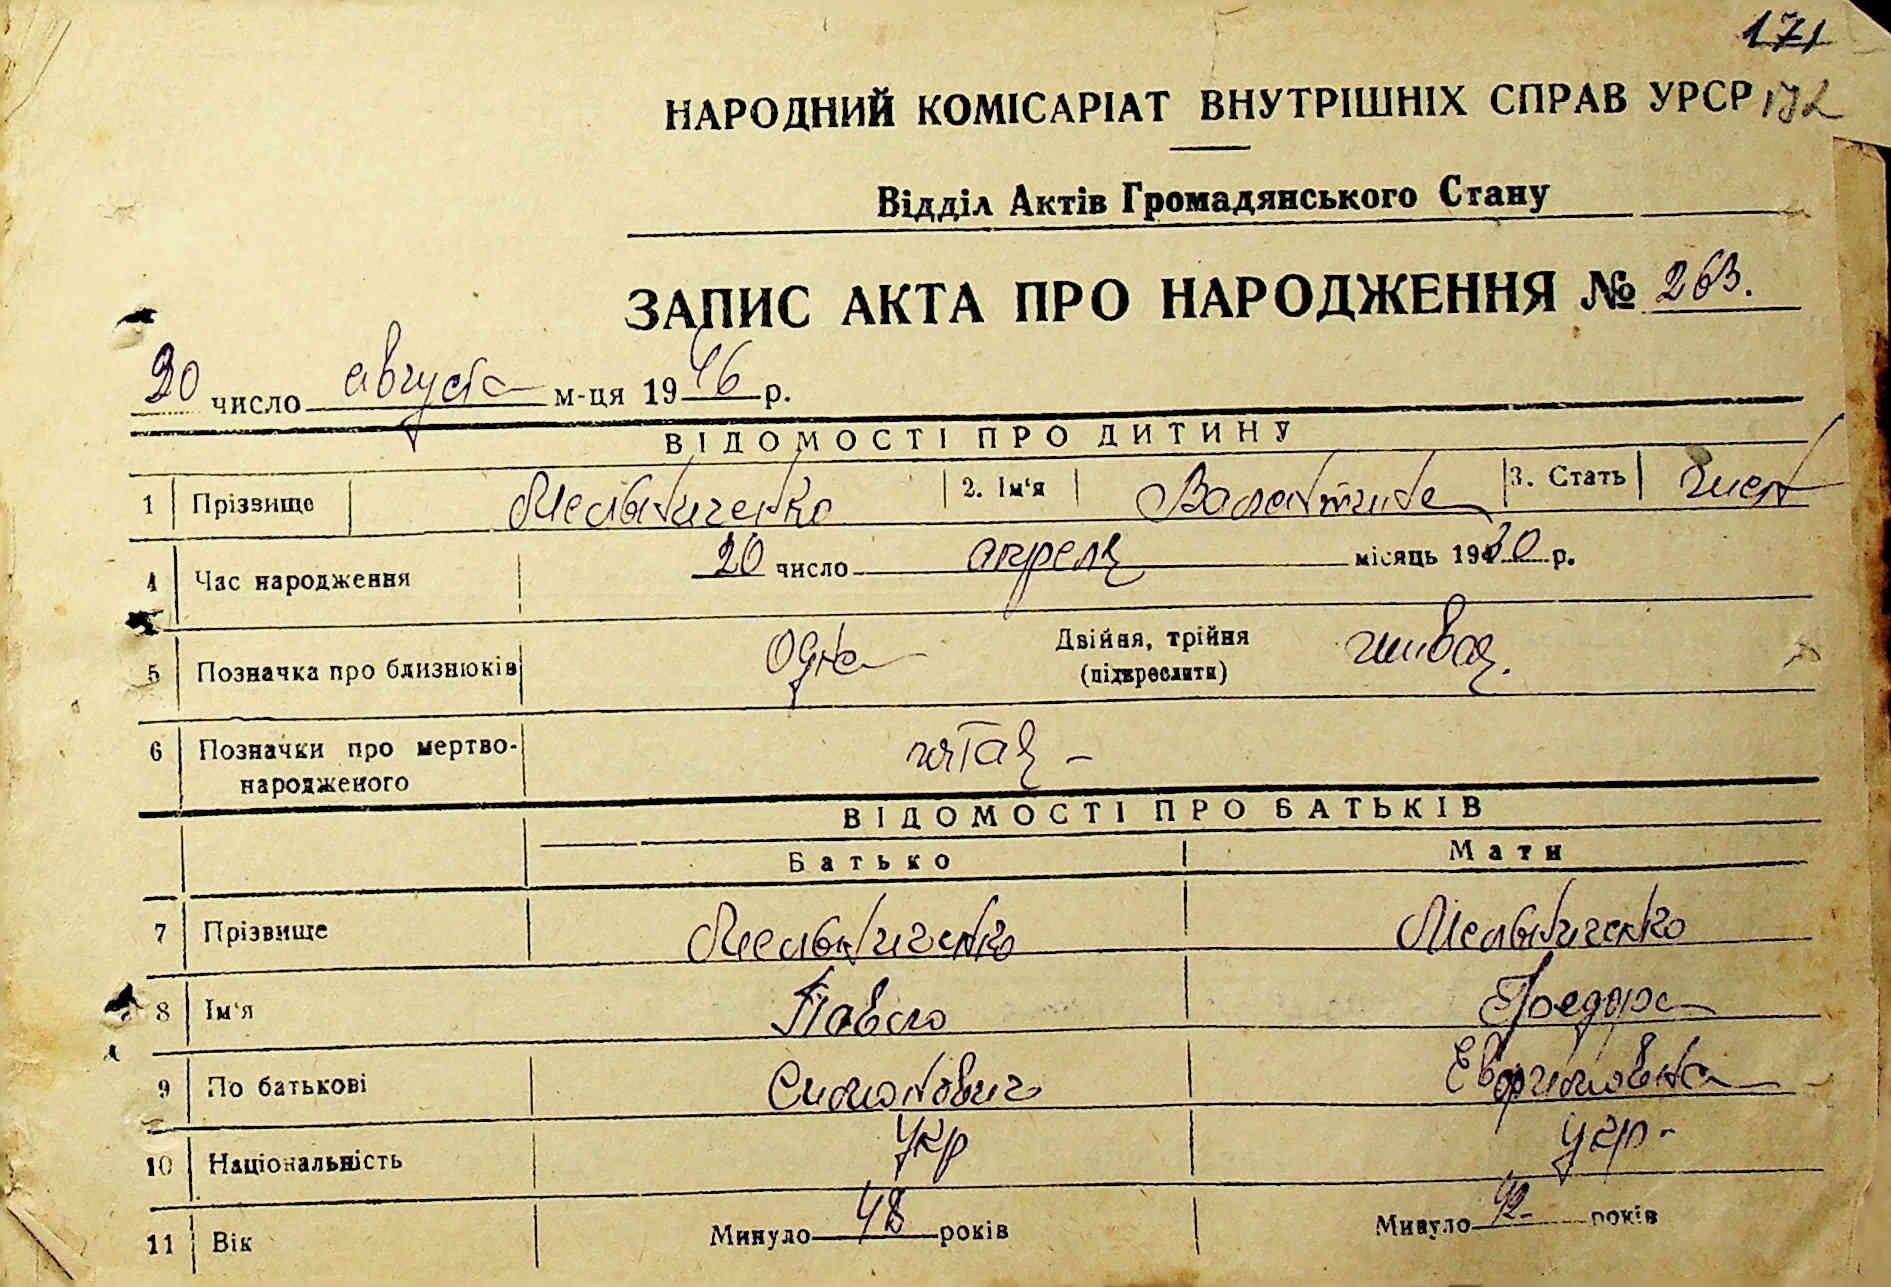 171
НАРОДНИЙ КОМІСАРІАТ ВНУТРІШНІХ СПРАВ УРСР 172
Відділ Актів Громадянського Стану
ЗАПИС АКТА ПРО НАРОДЖЕННЯ № 263.
20 число августа м-ця 1946 р.
ВІДОМОСТІ ПРО ДИТИНУ
1 Прізвище Мельниченко 2. Ім'я Валентина 3. Стать жен
4 Час народження 20 число апреля місяць 1930 р.
5 Позначка про близнюків Одна Двійня, трійня (підкреслити) живая.
6 Позначки про мертво-
народженого
ВІДОМОСТІ ПРО БАТЬКІВ
Батько Мати
7 Прізвище Мельниченко Мельниченко
8 Ім'я Павло Федора
9 По батькові Симонович Евфимовна
10 Національність укр укр-
11 Вік Минуло 48 років Минуло 42 років